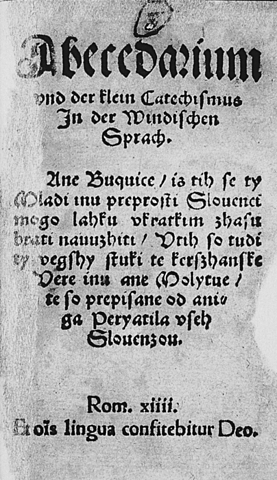 Abecedarium
vnd der klein Catechismus
In der Windischen
Sprach.
Ane Buquice / is tih se ty
Mladi inu preprosti Slouenci
mogo lahku vkratkim zhasu
brati nauuzhiti / Vtih so tudi
ty vegshy stuki te kerszhanske
Vere inu ane Molytue /
te so prepisane od ani
ga Peryatila vseh
Slouenzou.
Rom. xiiii.
Et oīs lingua confitebitur Deo.